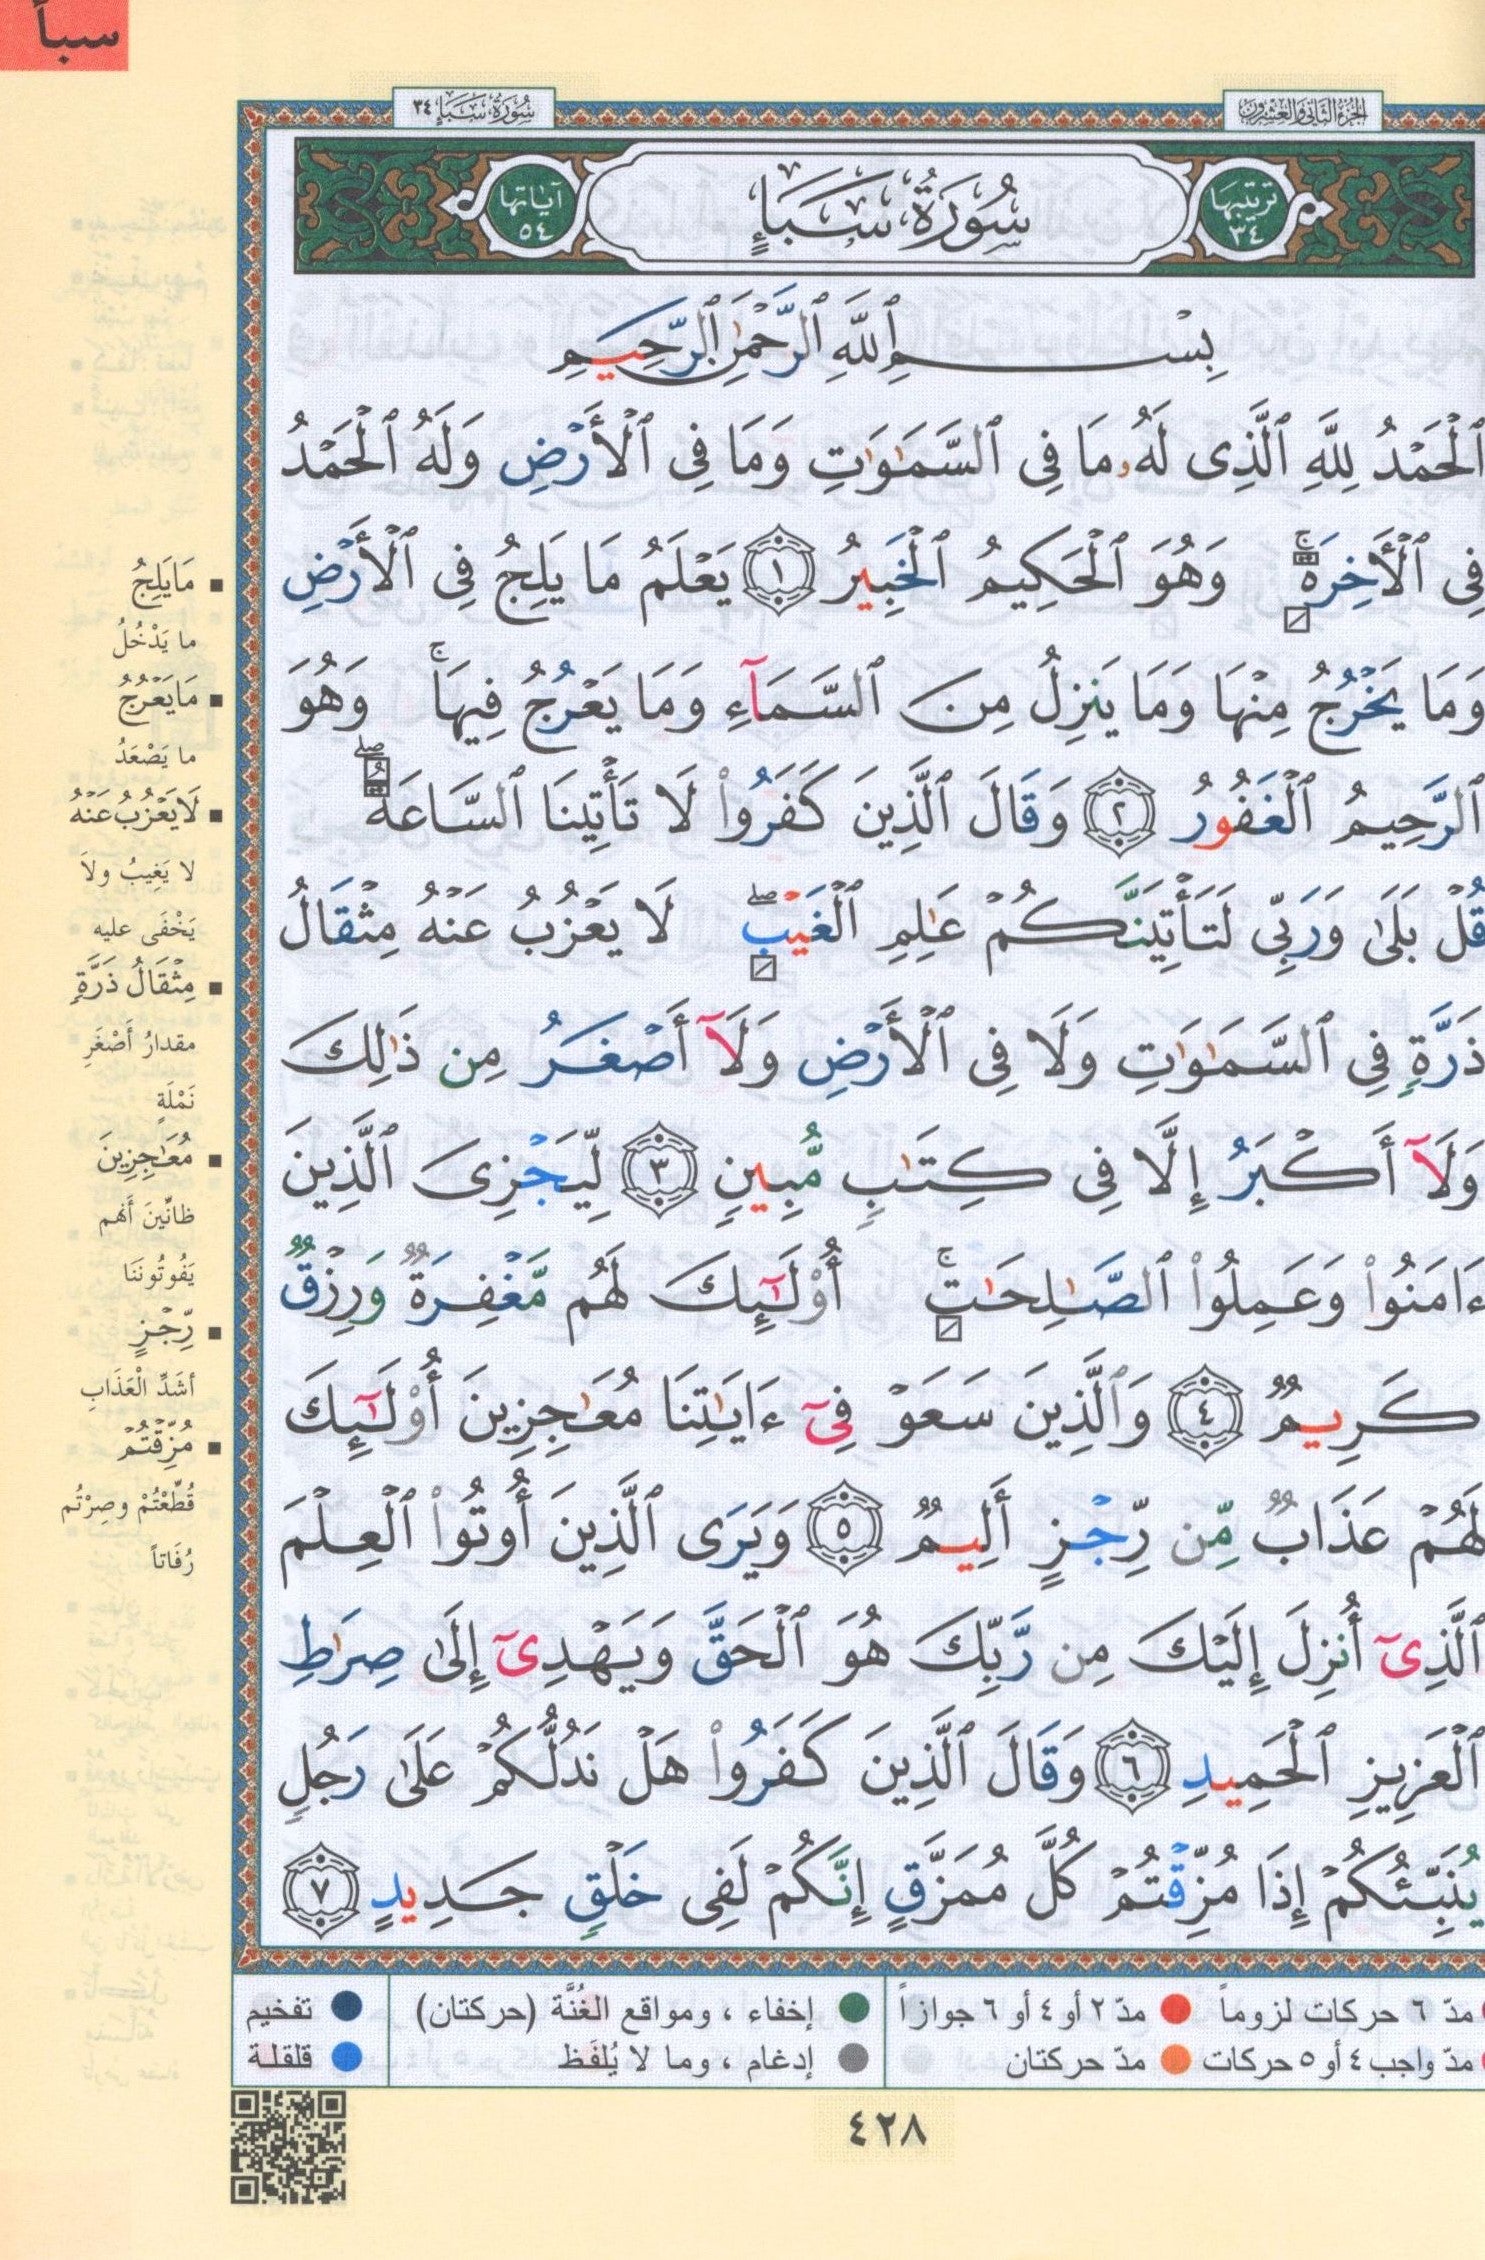 سبأ
الجزء الثاني والعشرون
سُورَةُ سَبَإٍ ٣٤
ترتيبها ٣٤
سُورَةُ سَبَإٍ
آياتها ٥٤
بِسْمِ ٱللَّهِ ٱلرَّحْمَٰنِ ٱلرَّحِيمِ
ٱلْحَمْدُ لِلَّهِ ٱلَّذِى لَهُۥ مَا فِى ٱلسَّمَٰوَٰتِ وَمَا فِى ٱلْأَرْضِ وَلَهُ ٱلْحَمْدُ
فِى ٱلْأَخِرَةِ ۚ وَهُوَ ٱلْحَكِيمُ ٱلْخَبِيرُ ١ يَعْلَمُ مَا يَلِجُ فِى ٱلْأَرْضِ
وَمَا يَخْرُجُ مِنْهَا وَمَا يَنزِلُ مِنَ ٱلسَّمَآءِ وَمَا يَعْرُجُ فِيهَا ۚ وَهُوَ
ٱلرَّحِيمُ ٱلْغَفُورُ ٢ وَقَالَ ٱلَّذِينَ كَفَرُوا۟ لَا تَأْتِينَا ٱلسَّاعَةُ ۖ
قُلْ بَلَىٰ وَرَبِّى لَتَأْتِيَنَّكُمْ عَٰلِمِ ٱلْغَيْبِ ۖ لَا يَعْزُبُ عَنْهُ مِثْقَالُ
ذَرَّةٍ فِى ٱلسَّمَٰوَٰتِ وَلَا فِى ٱلْأَرْضِ وَلَآ أَصْغَرُ مِن ذَٰلِكَ
وَلَآ أَكْبَرُ إِلَّا فِى كِتَٰبٍ مُّبِينٍ ٣ لِّيَجْزِىَ ٱلَّذِينَ
ءَامَنُوا۟ وَعَمِلُوا۟ ٱلصَّٰلِحَٰتِ ۚ أُو۟لَٰٓئِكَ لَهُم مَّغْفِرَةٌ وَرِزْقٌ
كَرِيمٌ ٤ وَٱلَّذِينَ سَعَوْ فِىٓ ءَايَٰتِنَا مُعَٰجِزِينَ أُو۟لَٰٓئِكَ
لَهُمْ عَذَابٌ مِّن رِّجْزٍ أَلِيمٌ ٥ وَيَرَى ٱلَّذِينَ أُوتُوا۟ ٱلْعِلْمَ
ٱلَّذِىٓ أُنزِلَ إِلَيْكَ مِن رَّبِّكَ هُوَ ٱلْحَقَّ وَيَهْدِىٓ إِلَىٰ صِرَٰطِ
ٱلْعَزِيزِ ٱلْحَمِيدِ ٦ وَقَالَ ٱلَّذِينَ كَفَرُوا۟ هَلْ نَدُلُّكُمْ عَلَىٰ رَجُلٍ
يُنَبِّئُكُمْ إِذَا مُزِّقْتُمْ كُلَّ مُمَزَّقٍ إِنَّكُمْ لَفِى خَلْقٍ جَدِيدٍ ٧
مَا يَلِجُ
ما يَدْخُلُ
مَا يَعْرُجُ
ما يَصْعَدُ
لَا يَعْزُبُ عَنْهُ
لا يَغِيبُ ولاَ
يَخْفَى عليه
مِثْقَالُ ذَرَّةٍ
مقدارُ أَصْغَرِ
نَمْلَةٍ
مُعَٰجِزِينَ
ظانِّينَ أنهم
يَفُوتُونَنَا
رِّجْزٍ
أشَدِّ الْعَذَابِ
مُزِّقْتُمْ
قُطِّعْتُمْ وصِرْتُم
رُفَاتاً
مدّ ٦ حركات لزوماً ● مدّ ٢ أو ٤ أو ٦ جوازاً ● إخفاء ، ومواقع الغُنَّة (حركتان) ● تفخيم
مدّ واجب ٤ أو ٥ حركات ● مدّ حركتان ● إدغام ، وما لا يُلفَظ ● قلقلة
٤٢٨